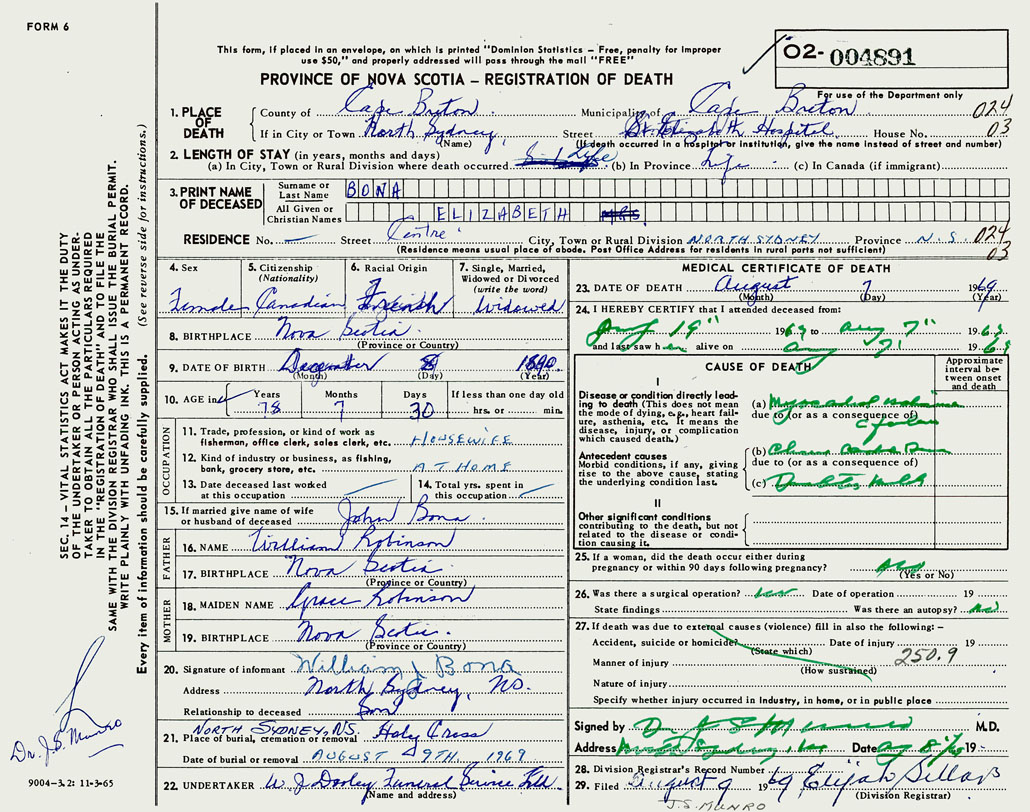 FORM 6
This form, if placed in an envelope, on which is printed "Dominion Statistics – Free, penalty for improper
use $50," and properly addressed will pass through the mail "FREE"
O2- 004891
PROVINCE OF NOVA SCOTIA – REGISTRATION OF DEATH
For use of the Department only
1. PLACE OF DEATH County of Cape Breton Municipality of Cape Breton 024
If in City or Town North Sydney, Street St. Elizabeth Hospital House No. 03
(Name) (If death occurred in a hospital or institution, give the name instead of street and number)
2. LENGTH OF STAY (in years, months and days)
(a) In City, Town or Rural Division where death occurred Life (b) In Province Life (c) In Canada (if immigrant)
3. PRINT NAME OF DECEASED Surname or Last Name BONA
All Given or Christian Names ELIZABETH MRS
RESIDENCE No. — Street Centre City, Town or Rural Division NORTH SYDNEY Province N.S. 024
(Residence means usual place of abode. Post Office Address for residents in rural parts not sufficient) 03
4. Sex Female
5. Citizenship (Nationality) Canadian
6. Racial Origin French
7. Single, Married, Widowed or Divorced (write the word) Widowed
8. BIRTHPLACE Nova Scotia
(Province or Country)
9. DATE OF BIRTH December 8 1890
(Month) (Day) (Year)
10. AGE in Years 78 Months 7 Days 30 If less than one day old hrs. or min.
OCCUPATION
11. Trade, profession, or kind of work as fisherman, office clerk, sales clerk, etc. HOUSEWIFE
12. Kind of industry or business, as fishing, bank, grocery store, etc. AT HOME
13. Date deceased last worked at this occupation
14. Total yrs. spent in this occupation
15. If married give name of wife or husband of deceased John Bona
FATHER
16. NAME William Robinson
17. BIRTHPLACE Nova Scotia
(Province or Country)
MOTHER
18. MAIDEN NAME Grace Robinson
19. BIRTHPLACE Nova Scotia
(Province or Country)
20. Signature of informant William J Bona
Address North Sydney, NS.
Relationship to deceased Son
21. Place of burial, cremation or removal NORTH SYDNEY, N.S. Holy Cross
Date of burial or removal AUGUST 9TH, 1969
22. UNDERTAKER W. J. Dooley Funeral Service Ltd.
(Name and address)
MEDICAL CERTIFICATE OF DEATH
23. DATE OF DEATH August 7 1969
(Month) (Day) (Year)
24. I HEREBY CERTIFY that I attended deceased from:
19" 1969 to Aug 7" 1969
and last saw her alive on Aug 7" 1969
CAUSE OF DEATH
Approximate interval between onset and death
I
Disease or condition directly leading to death (This does not mean the mode of dying, e.g., heart failure, asthenia, etc. It means the disease, injury, or complication which caused death.)
(a) Myocardial
due to (or as a consequence of)
Antecedent causes
Morbid conditions, if any, giving rise to the above cause, stating the underlying condition last.
(b)
due to (or as a consequence of)
(c) Diabetes
II
Other significant conditions contributing to the death, but not related to the disease or condition causing it.
25. If a woman, did the death occur either during pregnancy or within 90 days following pregnancy? No
(Yes or No)
26. Was there a surgical operation? No Date of operation 19
State findings Was there an autopsy? No
27. If death was due to external causes (violence) fill in also the following:–
Accident, suicide or homicide? Date of injury 19
(State which) 250.9
Manner of injury
(How sustained)
Nature of injury
Specify whether injury occurred in Industry, in home, or in public place
Signed by Dr J S Munro M.D.
Address North Sydney, NS Date Aug 8 19
28. Division Registrar's Record Number
29. Filed August 9 1969 Elijah Sellars
(Division Registrar)
J.S. MUNRO
SEC. 14 – VITAL STATISTICS ACT MAKES IT THE DUTY
OF THE UNDERTAKER OR PERSON ACTING AS UNDER-
TAKER TO OBTAIN ALL THE PARTICULARS REQUIRED
IN THE "REGISTRATION OF DEATH" AND TO FILE THE
SAME WITH THE DIVISION REGISTRAR WHO SHALL ISSUE THE BURIAL PERMIT.
WRITE PLAINLY WITH UNFADING INK. THIS IS A PERMANENT RECORD.
Every item of information should be carefully supplied. (See reverse side for instructions.)
Dr. J.S. Munro
9004-3.2: 11-3-65